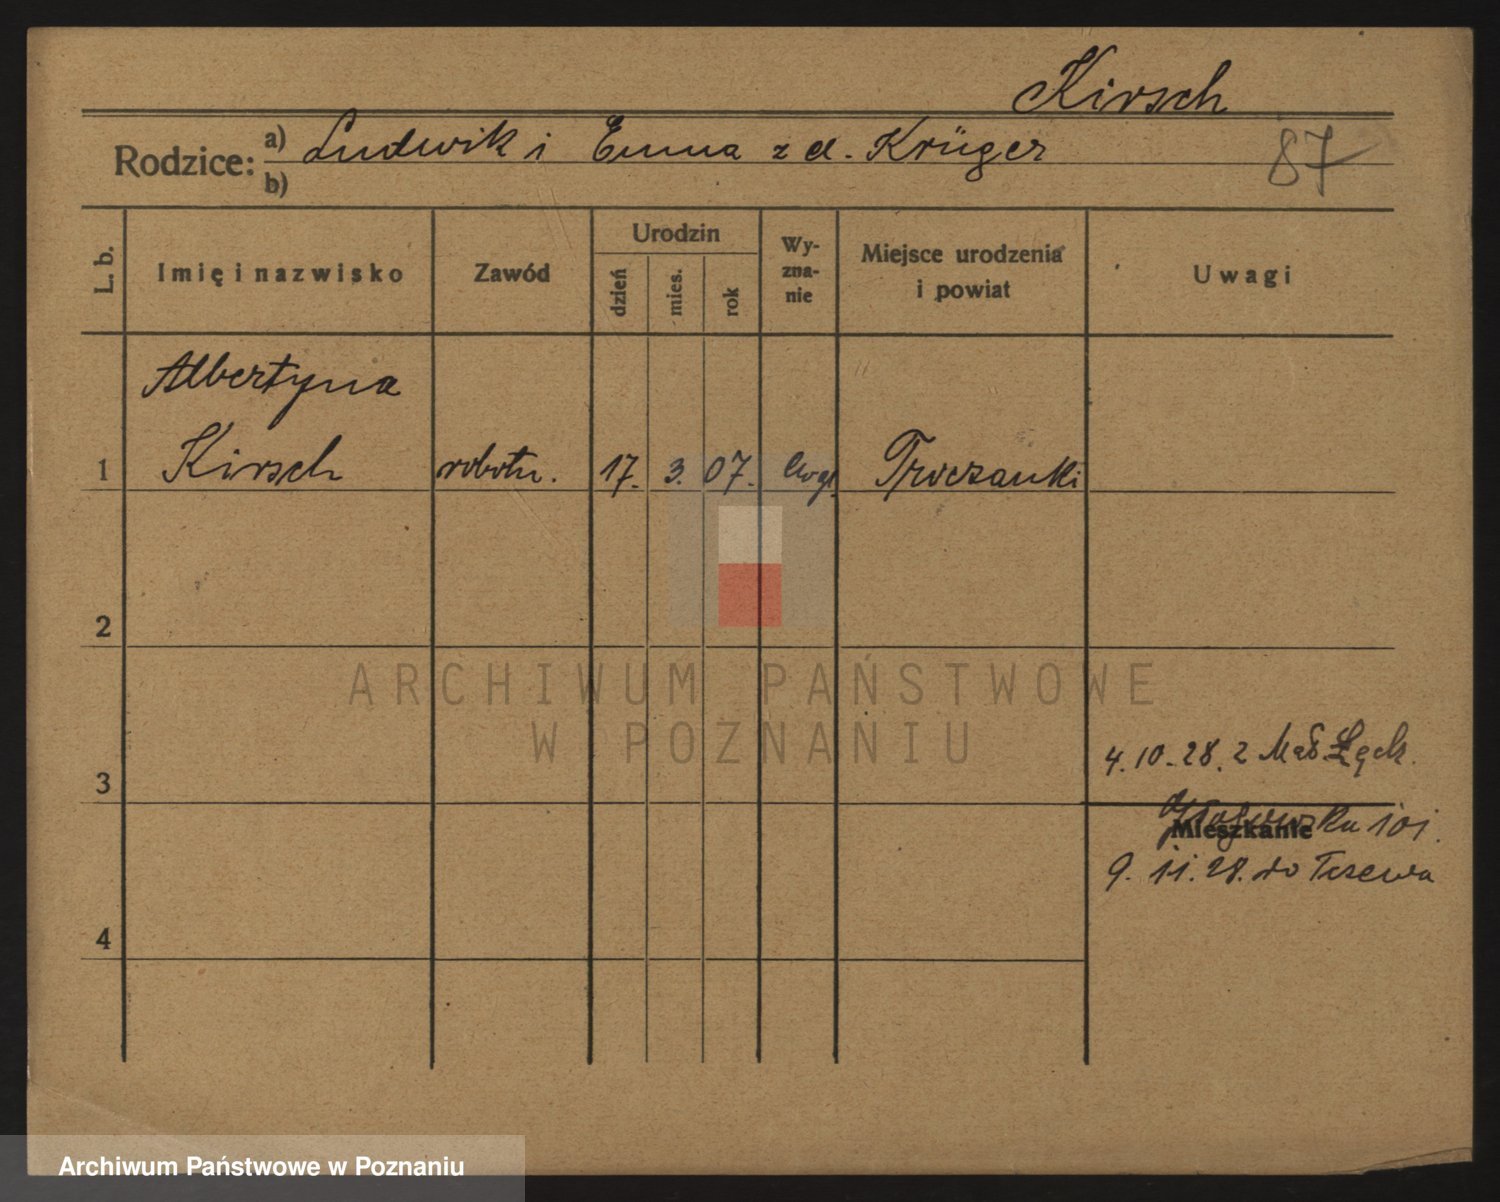 Kirsch
Rodzice: a) Ludwik i Emma z d. Krüger
b)
87
L. b. Imię i nazwisko Zawód Urodzin dzień mies. rok Wy-zna-nie Miejsce urodzenia i powiat Uwagi
Albertyna
1 Kirsch robotn. 17. 3. 07. Ewgl. Troczanki
2
ARCHIWUM PAŃSTWOWE
W POZNANIU
4.10.28. z
3
Mieszkanie 101.
9.11.28. do Tczewa
4
Archiwum Państwowe w Poznaniu